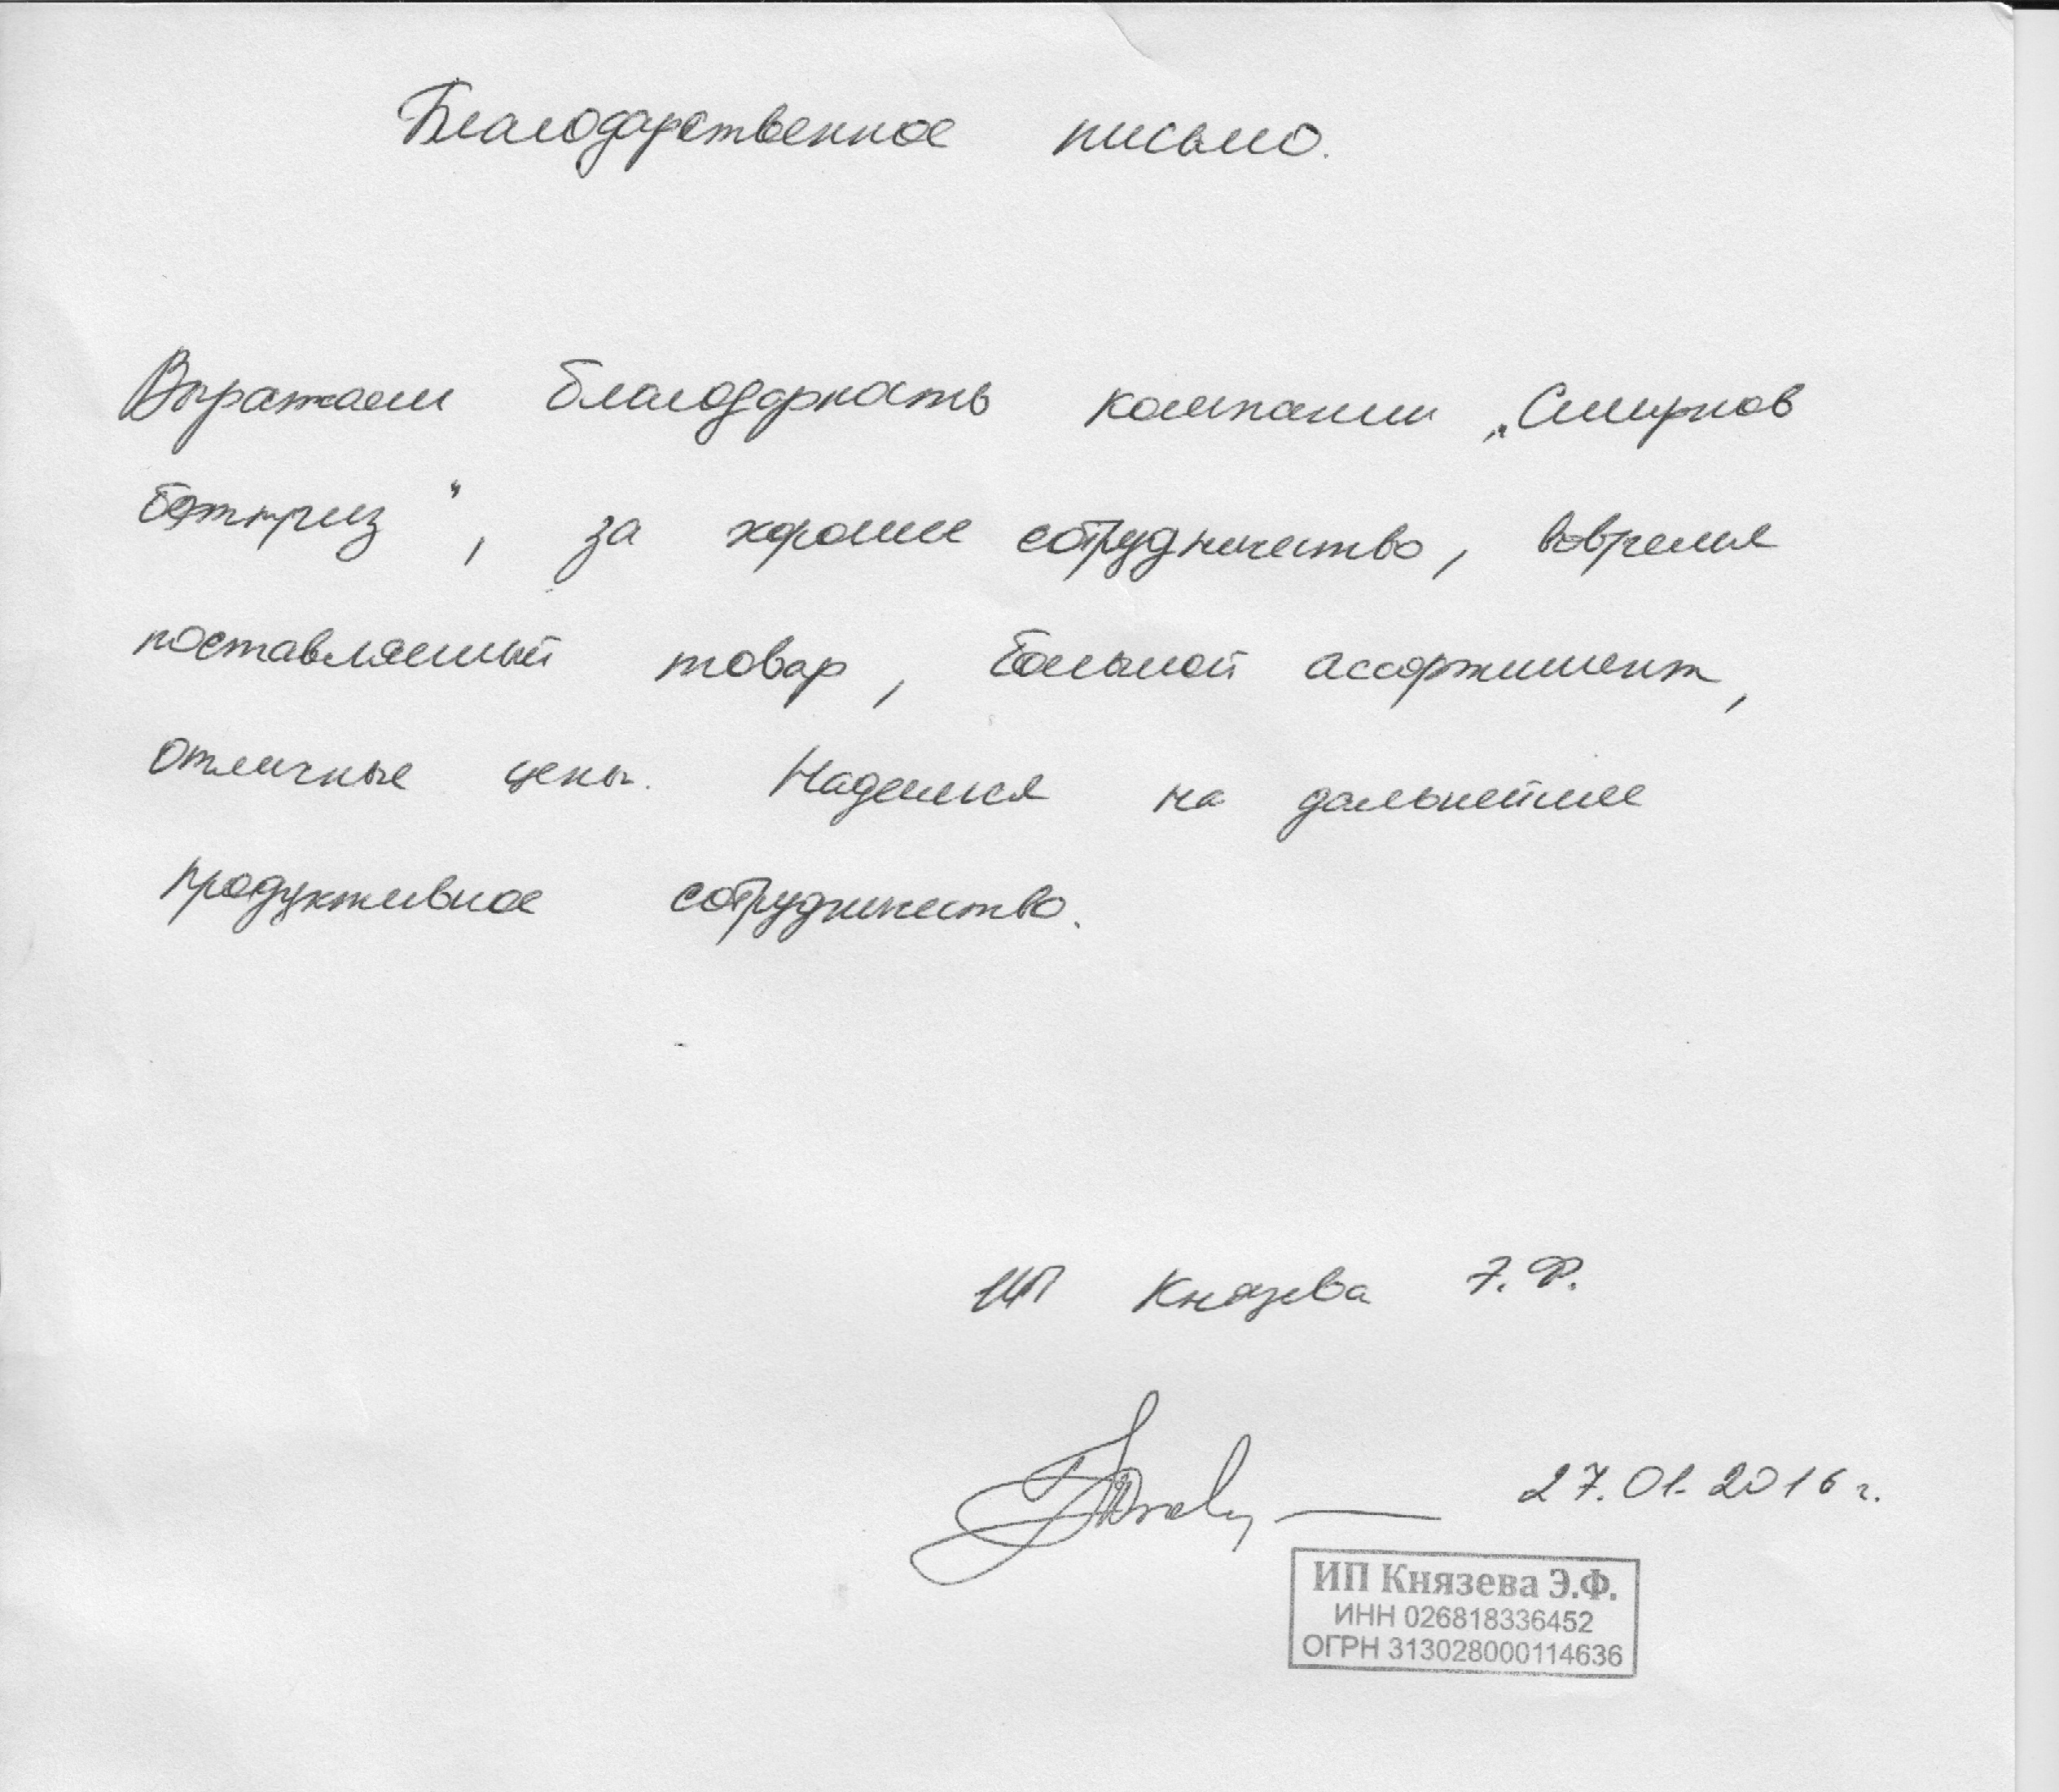 Благодарственное письмо.
Выражаем благодарность компании „Смирнов
бэттриз“, за хорошее сотрудничество, вовремя
поставляемый товар, большой ассортимент,
отличные цены. Надеемся на дальнейшее
продуктивное сотрудничество.
ИП Князева Э.Ф.
27.01.2016 г.
ИП Князева Э.Ф.
ИНН 026818336452
ОГРН 313028000114636